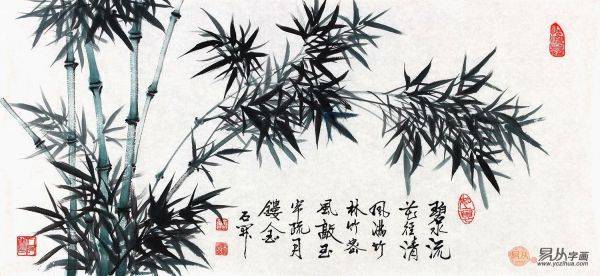 碧水流
花径清
风满竹
林竹
风敲玉
疏月
镂金
石
易从字画
www.yczihua.com